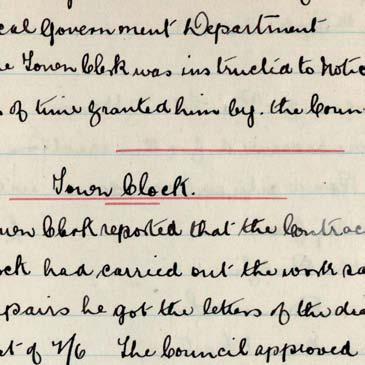 cal Government Department
e Town Clerk was instructed to Notic
s of time granted him by. the Coun
Town Clock.
own Clerk reported that the Contrac
ock had carried out the work sa
epairs he got the letters of the dia
t of 7/6 The Council approved